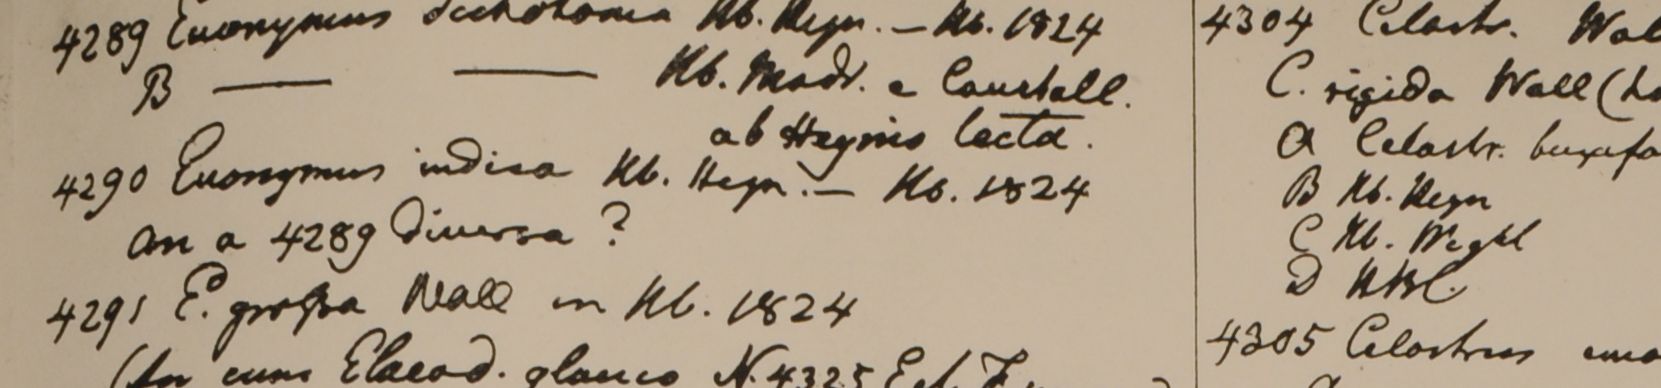 4289 Euonymus dichotoma Hb. Heyn. — Hb. 1824
B — — Hb. Madr. e
ab Heynio lecta.
4290 Euonymus indica Hb. Heyn. — Hb. 1824
an a 4289 diversa?
4291 E. grossa Wall in Hb. 1824
(An cum Elaeod. glauco N. 4325
4304 Celastr. Wal
C. rigida Wall (
A Celastr. buxifo
B Hb. Heyn
C Hb. Wight
D HBC.
4305 Celastrus